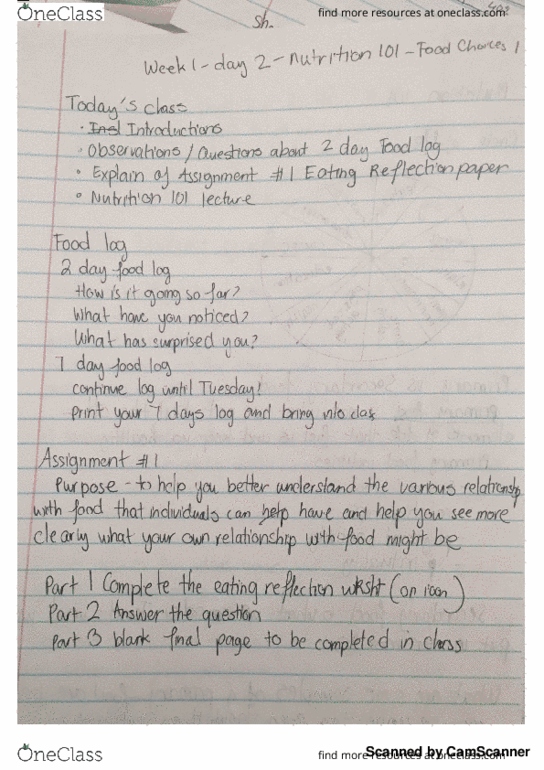 OneClass
find more resources at oneclass.com
Sh.
Week 1 - day 2 - nutrition 101 - Food Choices 1
Today's class
· Introductions
· Observations / Questions about 2 day Food log
· Explain of Assignment #1 Eating Reflection paper
· Nutrition 101 lecture
Food log
2 day food log
How is it going so far?
What have you noticed?
What has surprised you?
7 day food log
continue log until Tuesday!
Print your 7 days log and bring into clas
Assignment #1
Purpose - to help you better understand the various relationship
with food that individuals can help have and help you see more
clearly what your own relationship with food might be
Part 1 Complete the eating reflection wksht (on icon)
Part 2 Answer the question
Part 3 blank final page to be completed in class
OneClass
find more resources at oneclass.com
Scanned by CamScanner